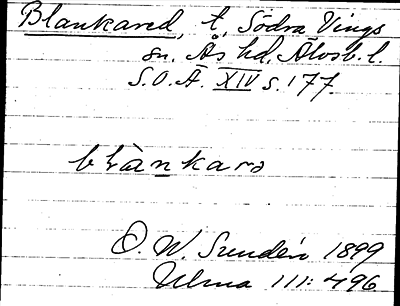 Blankared, t., Södra Vings
sn, Ås hd, Älvsb. l.
S.O.Ä. XIV s. 177.
blankarə
O. W. Sundén 1899
Ulma 111: 496